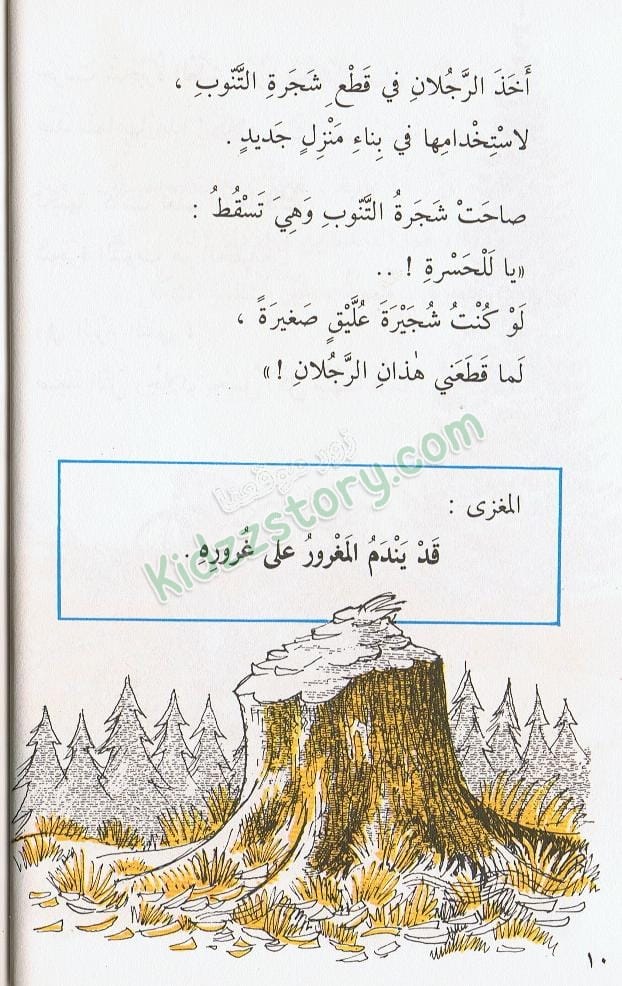 أَخَذَ الرَّجُلانِ في قَطْعِ شَجَرَةِ التَّنّوبِ ،
لاسْتِخْدامِها في بِناءِ مَنْزِلٍ جَديدٍ .
صاحَتْ شَجَرَةُ التَّنّوبِ وَهِيَ تَسْقُطُ :
«يا لَلْحَسْرةِ ! ..
لَوْ كُنْتُ شُجَيْرَةَ عُلَّيْقٍ صَغيرَةً ،
لَما قَطَعَني هٰذانِ الرَّجُلانِ !»
زوروا موقعنا
Kidzzstory.com
المغزى :
قَدْ يَنْدَمُ المَغْرورُ على غُرورِهِ .
١٠